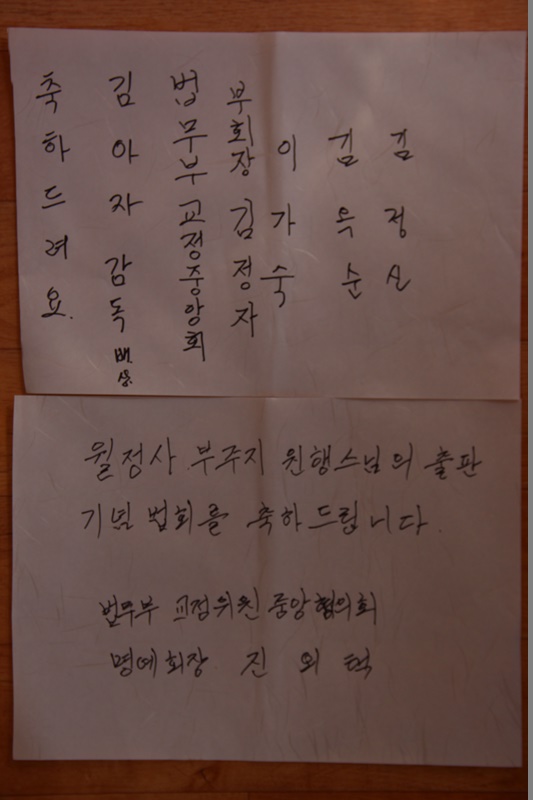 축하드려요.
김아자 감독 배상.
법무부교정중앙회
부회장 김정자
이가숙
김옥순
월정사 부주지 원행스님의 출판
기념 법회를 축하드립니다.
법무부 교정위원 중앙협의회
명예회장 진 외 택